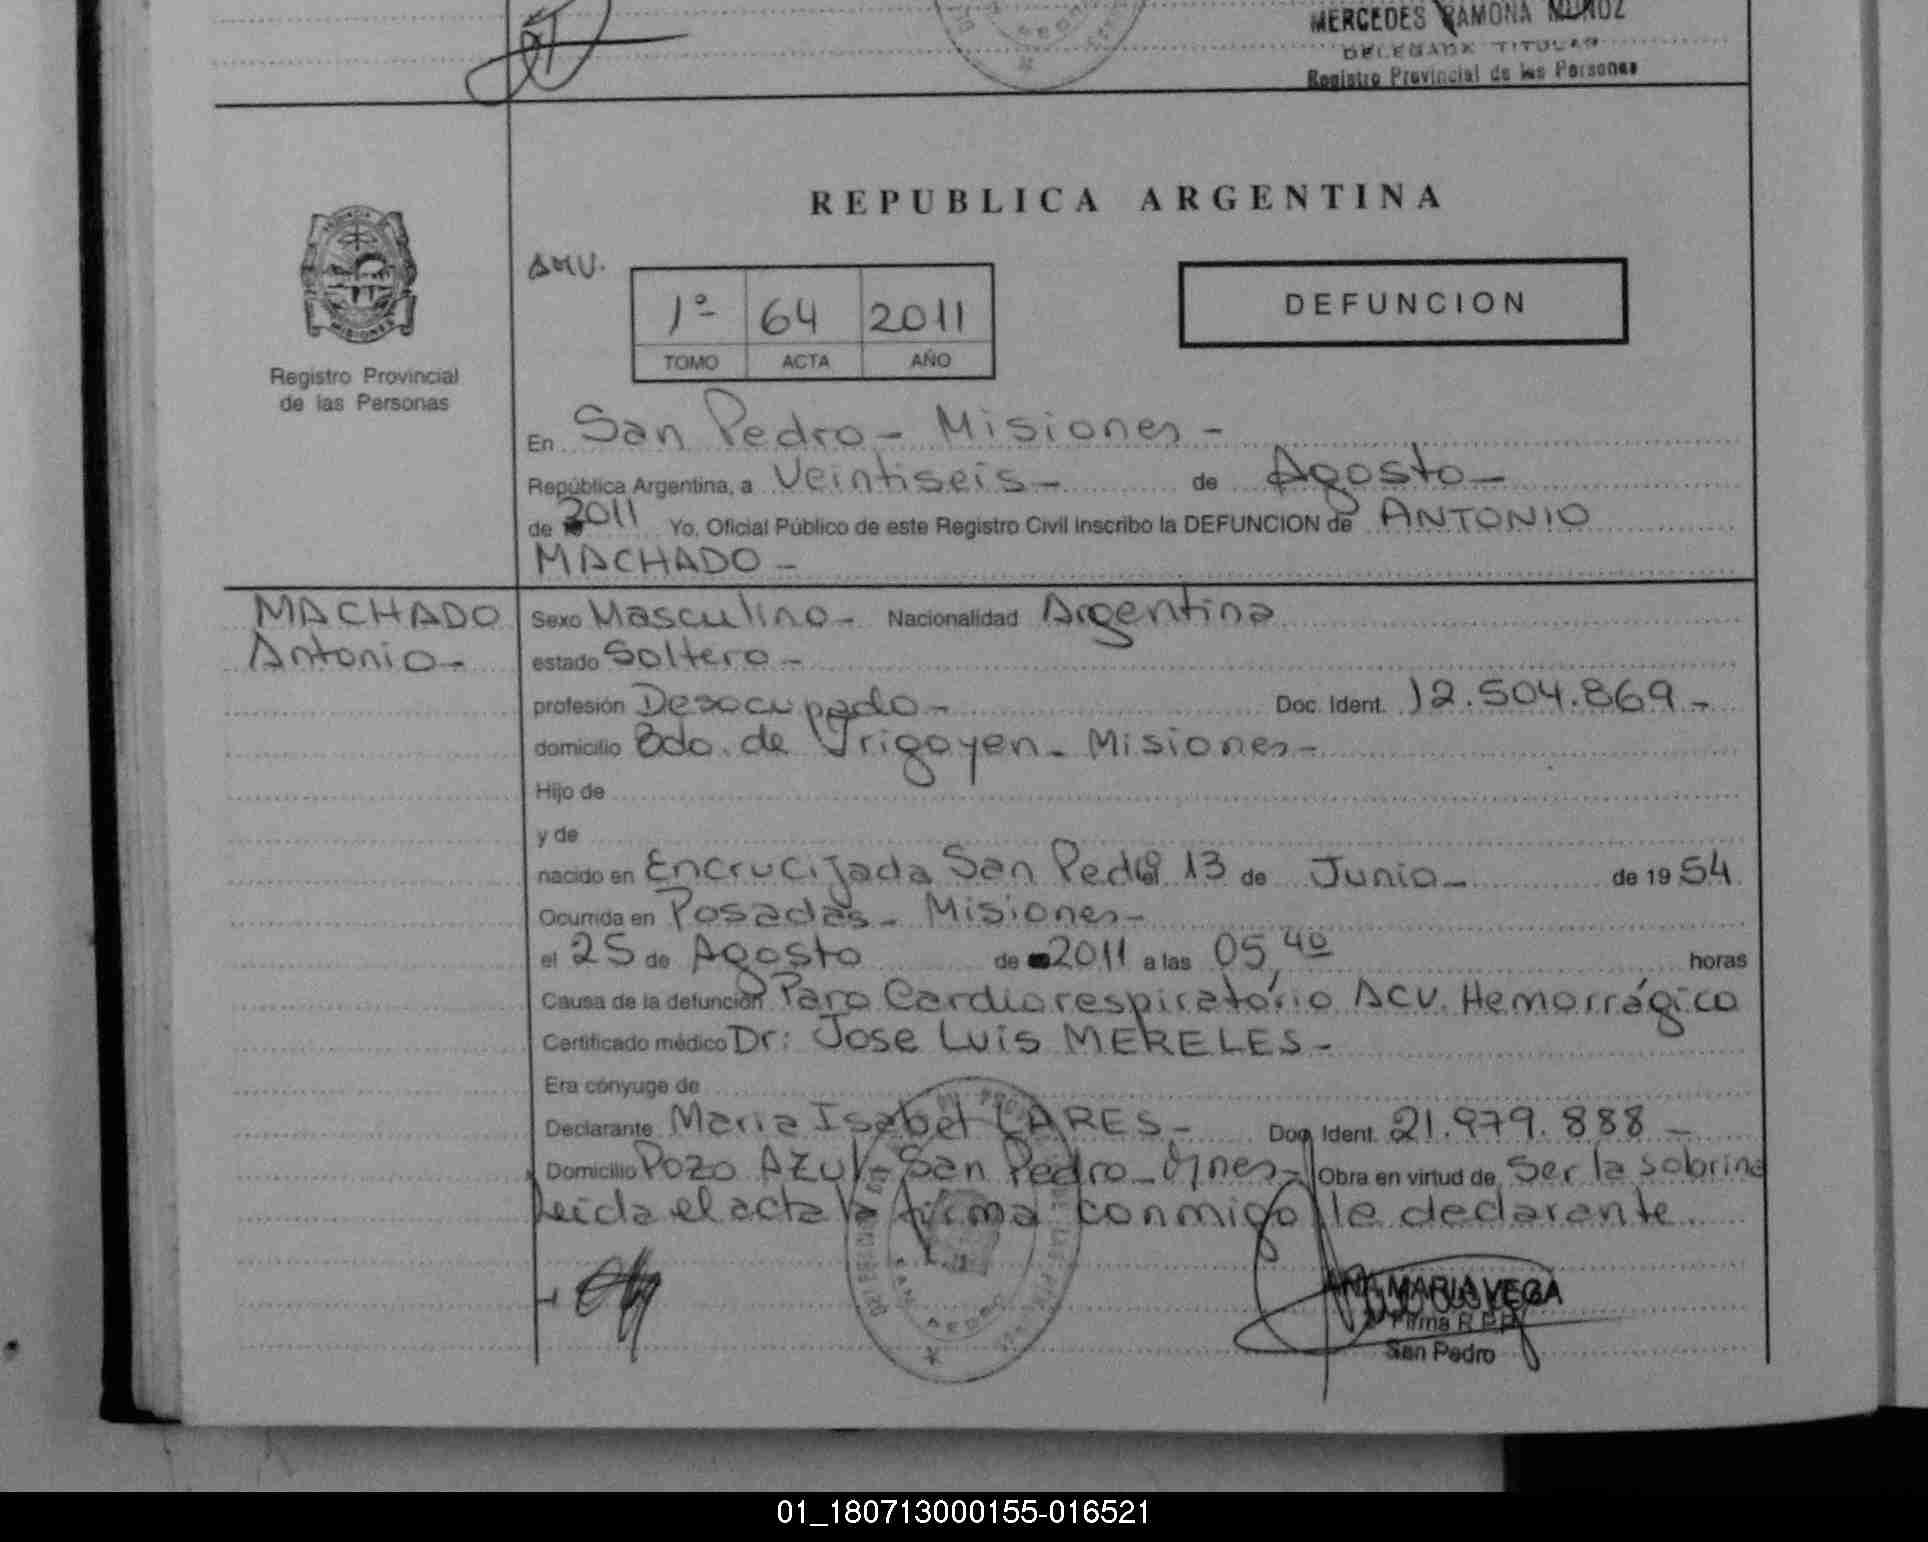 MERCEDES RAMONA MUÑOZ
DELEGADA TITULAR
Registro Provincial de las Personas
REPUBLICA ARGENTINA
AMV.
1º 64 2011
TOMO ACTA AÑO
DEFUNCION
MISIONES
Registro Provincial
de las Personas
En San Pedro - Misiones -
República Argentina, a Veintiseis - de Agosto -
de 2011 Yo, Oficial Público de este Registro Civil inscribo la DEFUNCION de ANTONIO
MACHADO -
MACHADO
Antonio -
Sexo Masculino - Nacionalidad Argentina
estado Soltero -
profesión Desocupado - Doc. Ident. 12.504.869 -
domicilio Bdo. de Irigoyen - Misiones -
Hijo de
y de
nacido en Encrucijada San Pedro 13 de Junio - de 19 54
Ocurrida en Posadas - Misiones -
el 25 de Agosto de 2011 a las 05,40 horas
Causa de la defunción Paro Cardiorespiratório ACV. Hemorrágico
Certificado médico Dr: Jose Luis MERELES -
Era cónyuge de
Declarante Maria Isabel LARES - Doc. Ident. 21.979.888 -
Domicilio Pozo Azul - San Pedro - Mnes - Obra en virtud de Ser la sobrina
Leida el acta la firma conmigo la declarante
ANA MARIA VEGA
Firma R.P.P.
San Pedro
SAN PEDRO
01_180713000155-016521